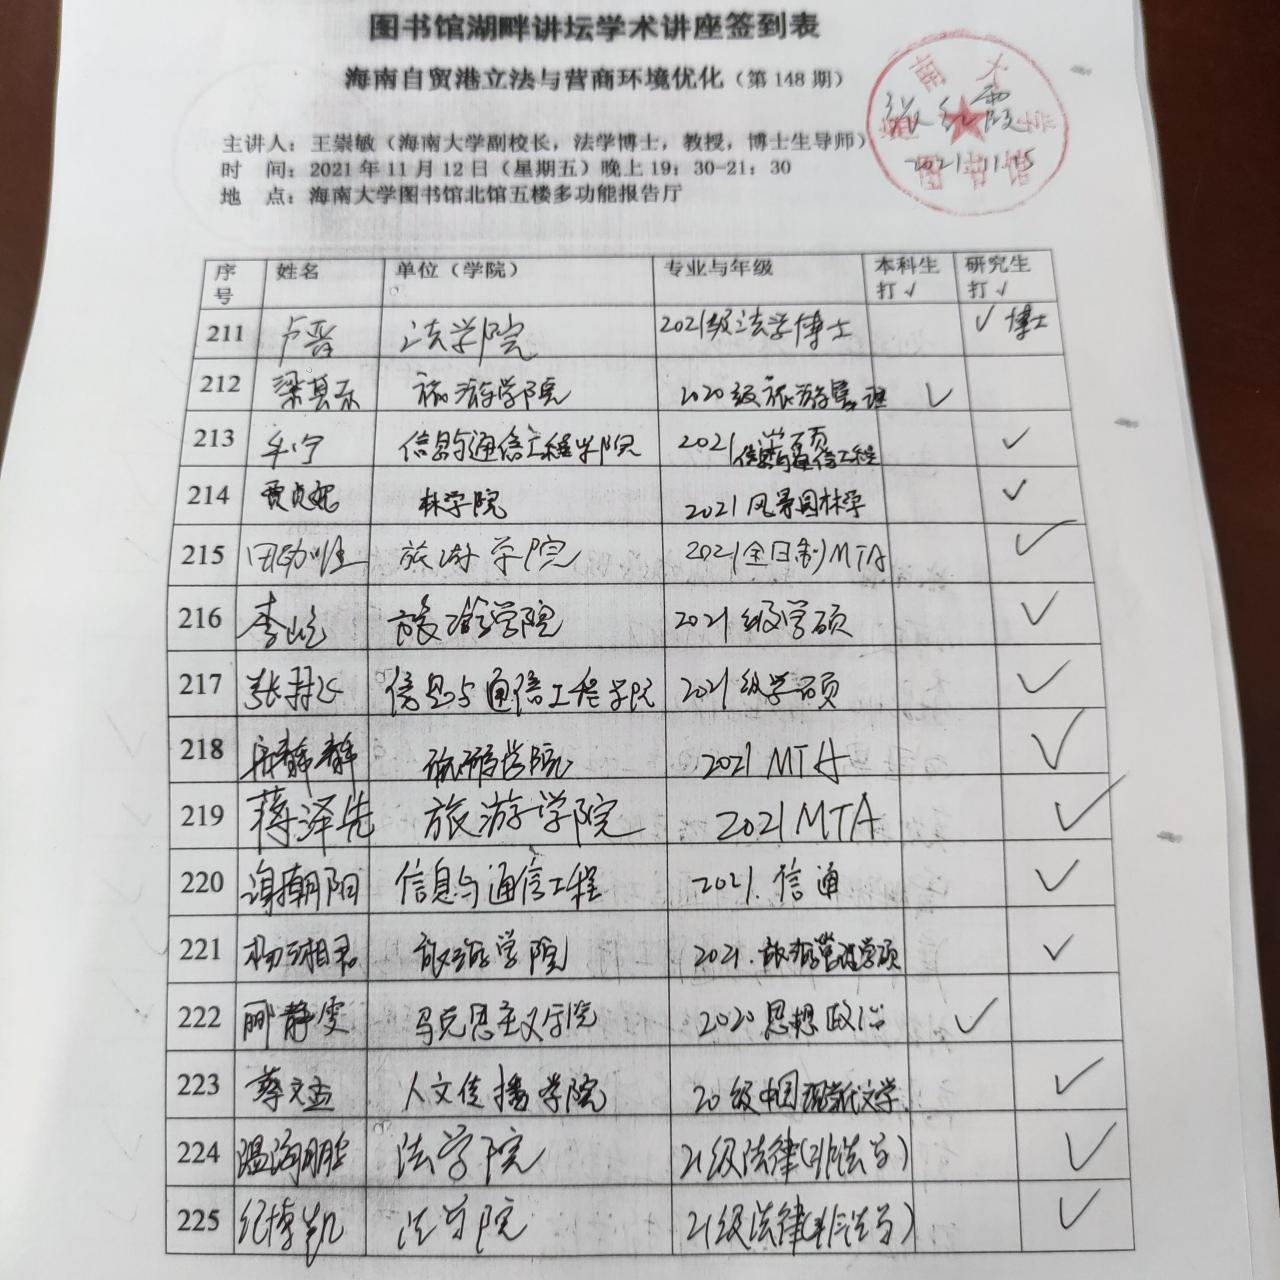 图书馆湖畔讲坛学术讲座签到表
海南自贸港立法与营商环境优化（第 148 期）
主讲人：王崇敏（海南大学副校长，法学博士，教授，博士生导师）
时 间：2021 年 11 月 12 日（星期五）晚上 19：30-21：30
地 点：海南大学图书馆北馆五楼多功能报告厅
张红霞
2021.11.15
南大
图书馆
序号 姓名 单位（学院） 专业与年级 本科生打√ 研究生打√
211 卢晋 法学院 2021级法学博士 √ 博士
212 旅游学院 2020级旅游管理 √
213 牟宁 信息与通信工程学院 2021学硕 信息与通信工程 √
214 贾贞妮 林学院 2021风景园林学 √
215 旅游学院 2021全日制MTA √
216 李屹 旅游学院 2021级学硕 √
217 信息与通信工程学院 2021级学硕 √
218 静静 旅游学院 2021 MTA √
219 蒋泽先 旅游学院 2021MTA √
220 谢朝阳 信息与通信工程 2021.信通 √
221 杨湘君 旅游学院 2021.旅游管理学硕 √
222 郦静雯 马克思主义学院 2020思想政治 √
223 蔡文孟 人文传播学院 20级中国现当代文学 √
224 温海鹏 法学院 21级法律(非法学) √
225 纪博凯 法学院 21级法律(非法学) √